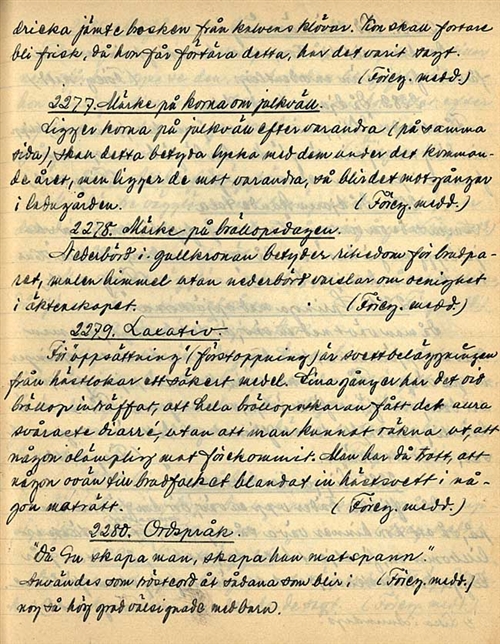 dricka jämte bosken från kalvens klövar. Kon skall fortare
bli frisk, då hon får förtära detta, har det varit sagt.
(Föreg. medd.)
2277. Märke på korna om julkväll.
Ligger korna på julkväll efter varandra (på samma
sida), skall detta betyda lycka med dem under det komman-
de året, men ligger de mot varandra, så blir det motgångar
i ladugården. (Föreg. medd.)
2278. Märke på bröllopsdagen.
Nederbörd i gullkronan betyder rikedom för brudpa-
ret, mulen himmel utan nederbörd varslar om oenighet
i äktenskapet. (Föreg. medd.)
2279. Laxativ.
För "oppsättning" (förstoppning) är svettbeläggningen
från hästlokar ett säkert medel. Sina gånger har det vid
bröllop inträffat, att hela bröllopsskaran fått det allra
svåraste diarre, utan att man kunnat räkna ut, att
någon olämplig mat förekommit. Man har då trott, att
någon ovän till brudfolket blandat in hästsvett i nå-
gon maträtt. (Föreg. medd.)
2280. Ordspråk.
"Då Gu skapa man, skapa han matspann."
Användes som tröstord åt sådana som blir i (Föreg. medd.)
nog så hög grad välsignade med barn.